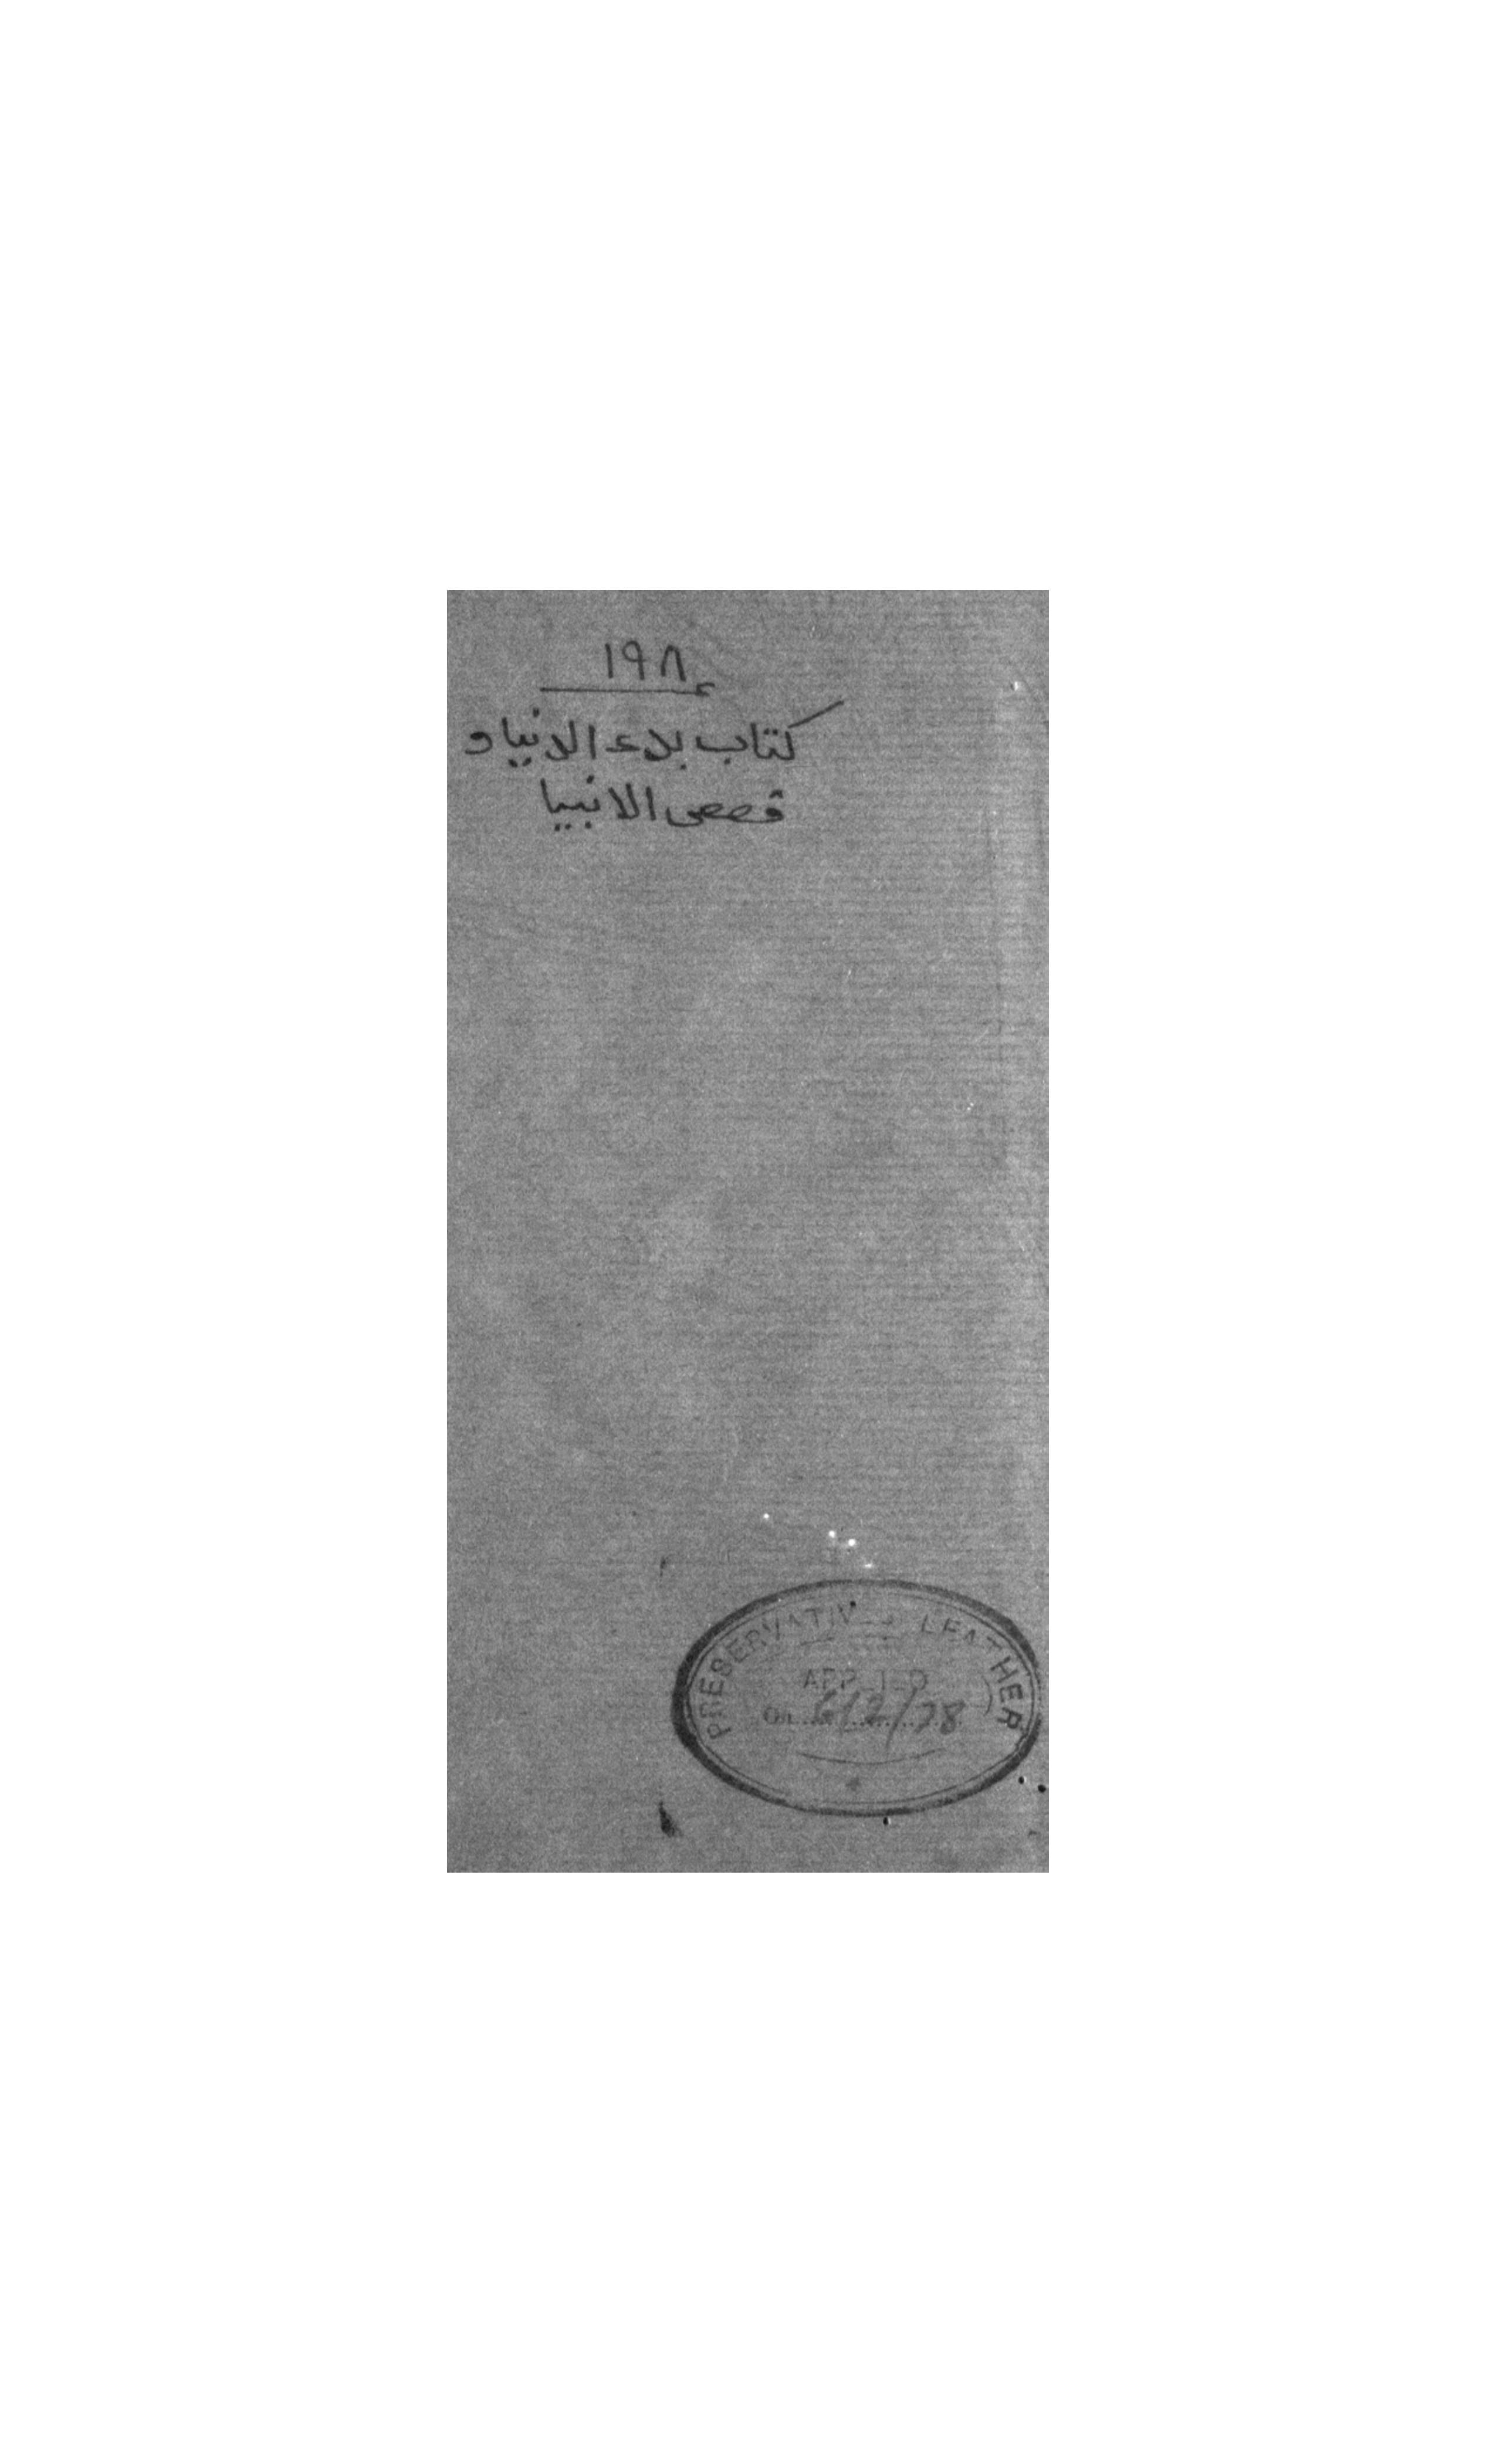 ١٩٨
كتاب بدء الانبياء و
قصص الانبيا
PRESERVATIVE LEATHER
APPLIED
On 612/78